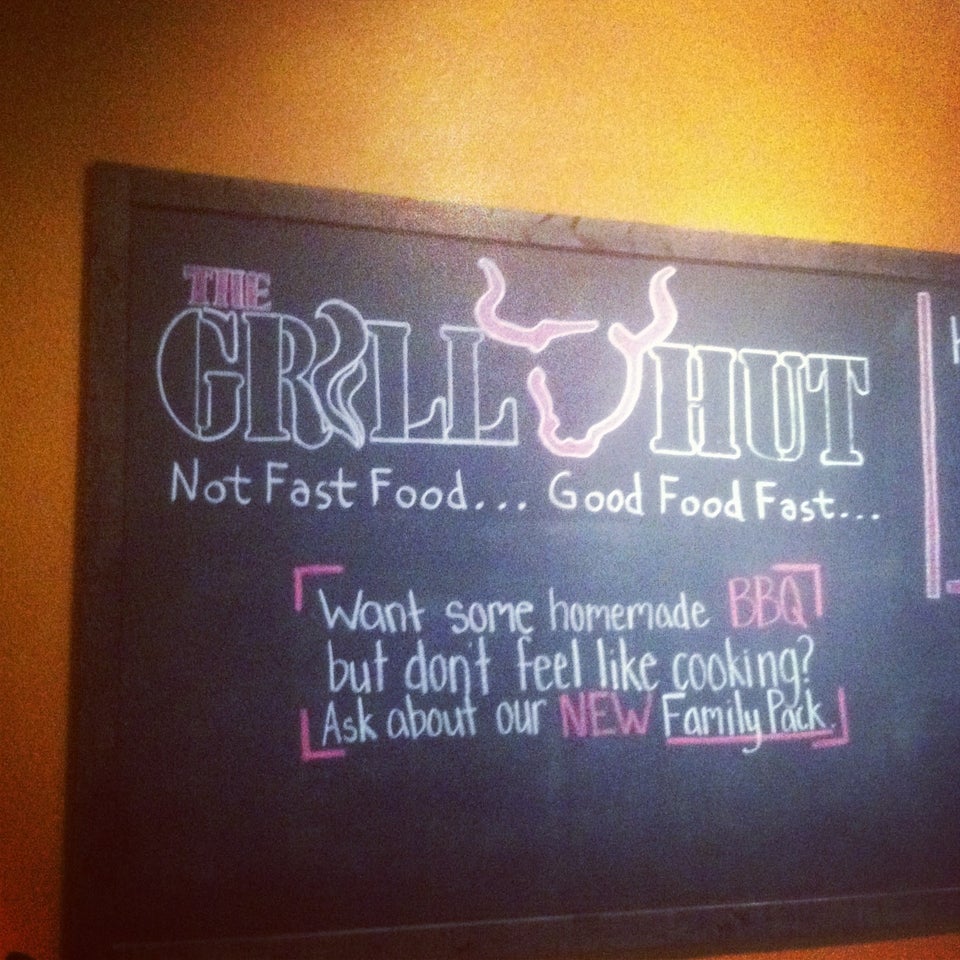 THE
GRILL HUT
Not Fast Food... Good Food Fast...
Want some homemade BBQ
but don't feel like cooking?
Ask about our NEW Family Pack.